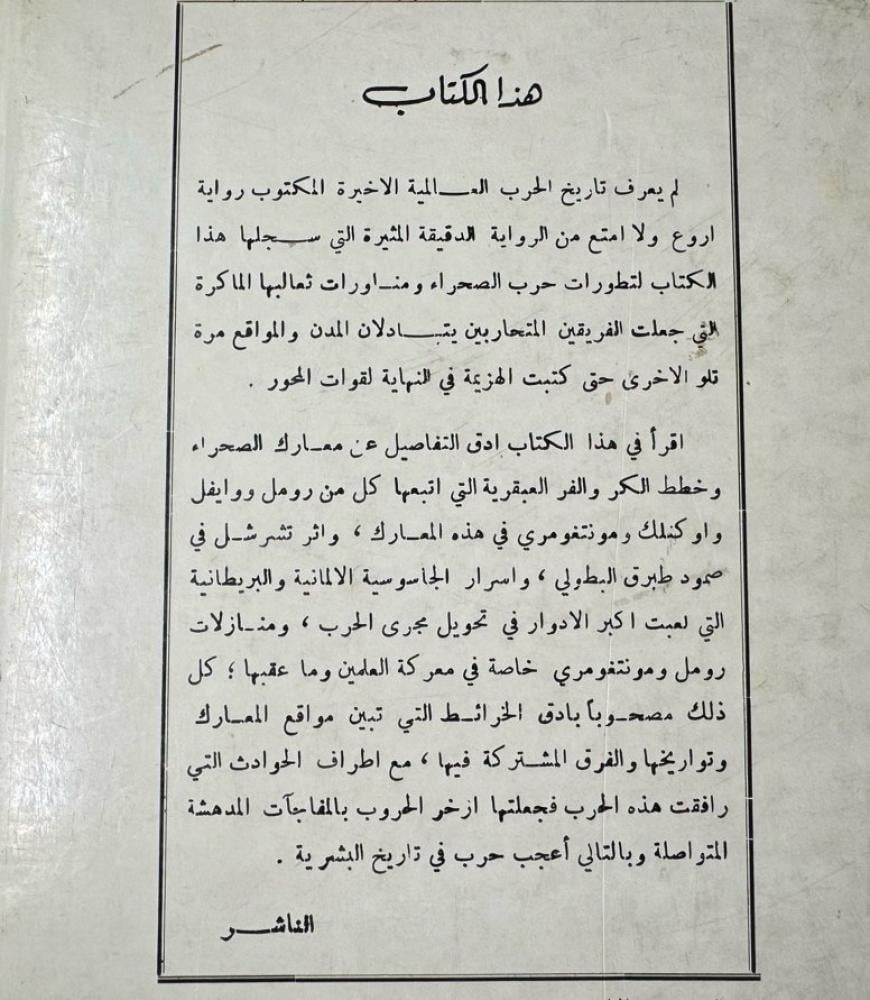 هذا الكتاب
لم يعرف تاريخ الحرب العالمية الاخيرة المكتوب رواية
اروع ولا امتع من الرواية الدقيقة المثيرة التي سجلها هذا
الكتاب لتطورات حرب الصحراء ومناورات ثعالبها الماكرة
التي جعلت الفريقين المتحاربين يتبادلان المدن والمواقع مرة
تلو الاخرى حتى كتبت الهزيمة في النهاية لقوات المحور .
اقرأ في هذا الكتاب ادق التفاصيل عن معارك الصحراء
وخطط الكر والفر العبقرية التي اتبعها كل من رومل ووايفل
واوكنلك ومونتغومري في هذه المعارك ، واثر تشرشل في
صمود طبرق البطولي ، واسرار الجاسوسية الالمانية والبريطانية
التي لعبت اكبر الادوار في تحويل مجرى الحرب ، ومنازلات
رومل ومونتغومري خاصة في معركة العلمين وما عقبها ؛ كل
ذلك مصحوباً بادق الخرائط التي تبين مواقع المعارك
وتواريخها والفرق المشتركة فيها ، مع اطراف الحوادث التي
رافقت هذه الحرب فجعلتها ازخر الحروب بالمفاجآت المدهشة
المتواصلة وبالتالي أعجب حرب في تاريخ البشرية .
الناشر